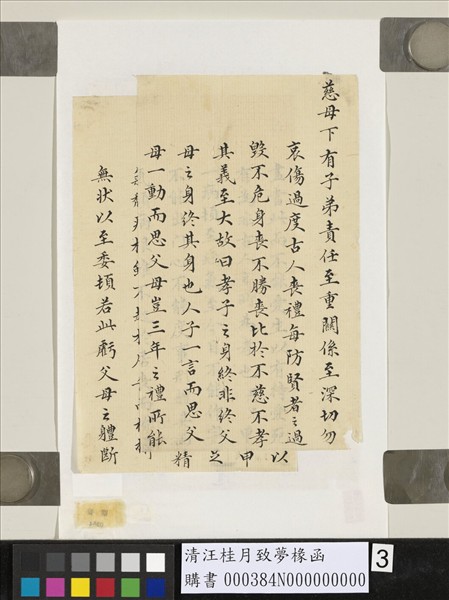 慈母下有子弟責任至重關係至深切勿
哀傷過度古人喪禮每防賢者之過
毀不危身喪不勝喪比於不慈不孝
其義至大故曰孝子之身終非終父
母之身終其身也人子一言而思父
母一動而思父母豈三年之禮所能
無狀以至委頓若此虧父母之體斷
以甲之精
清汪桂月致夢椽函
購書 000384N000000000
3